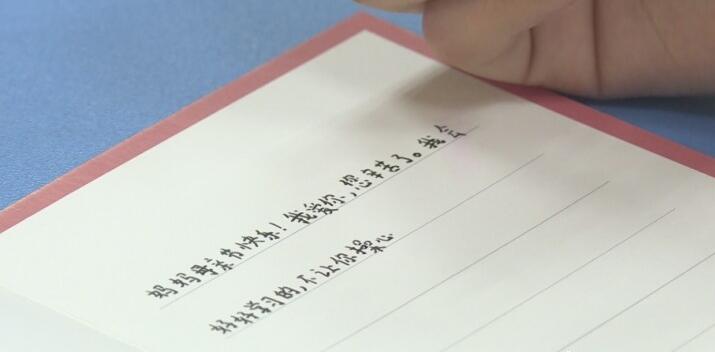 妈妈母亲节快乐！我爱你，您辛苦了。我会
好好学习的，不让你操心